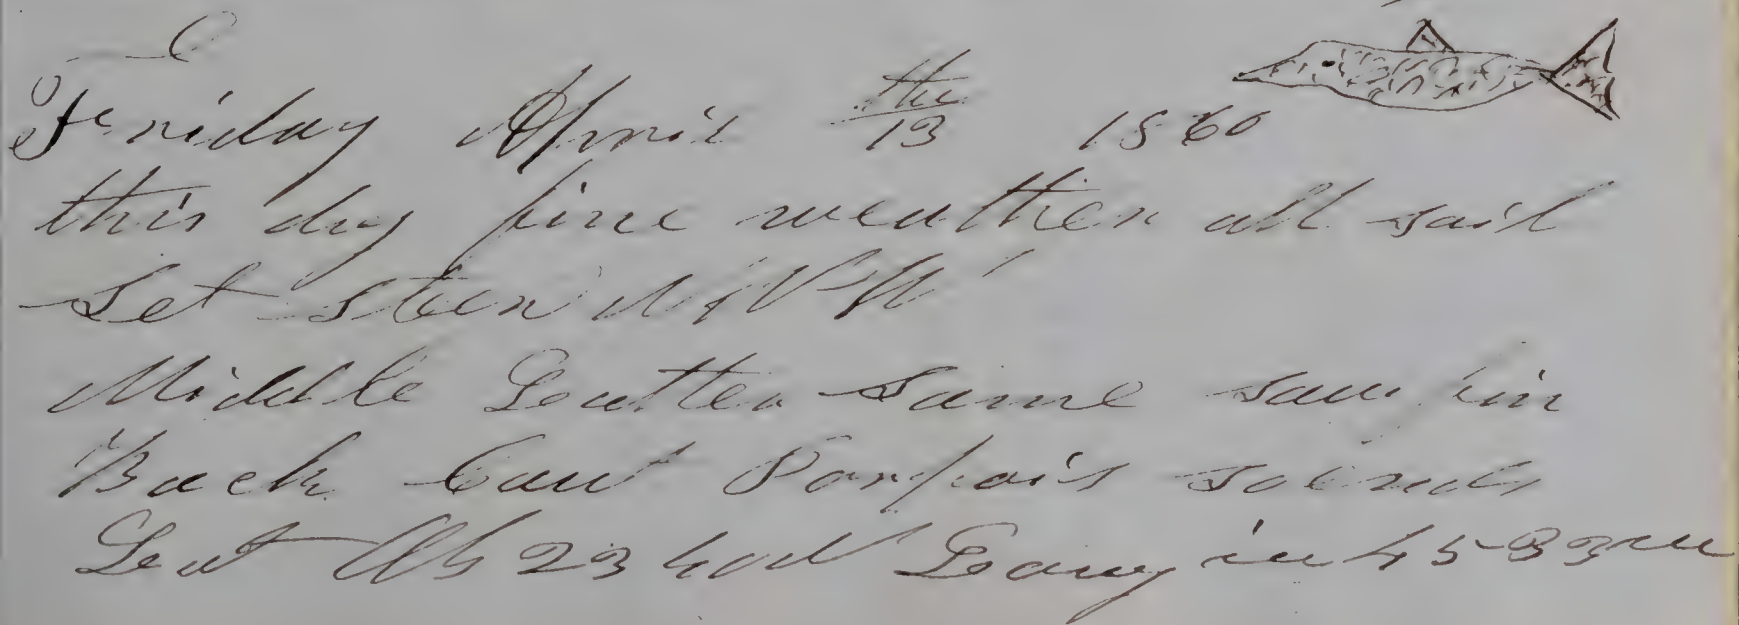 Friday April the 13 1860
this day fine weather all sail
Set steer
Middle Latter Same saw fin
Back Caut Porpois
Lat 23 Long in